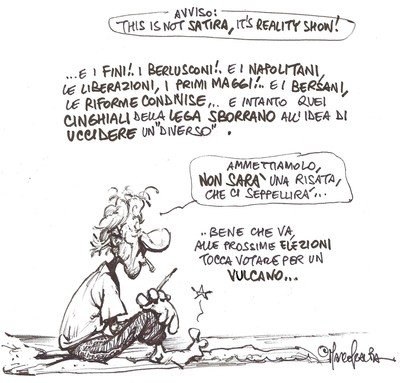 AVVISO:
THIS IS NOT SATIRA, IT'S REALITY SHOW!
...E I FINI!. I BERLUSCONI!. E I NAPOLITANI,
LE LIBERAZIONI, I PRIMI MAGGI!.. E I BERSANI,
LE RIFORME CONDIVISE,.. E INTANTO QUEI
CINGHIALI DELLA LEGA SBORRANO ALL'IDEA DI
UCCIDERE UN "DIVERSO".
AMMETTIAMOLO,
NON SARÀ UNA RISATA,
CHE CI SEPPELLIRÀ...
..BENE CHE VA,
ALLE PROSSIME ELEZIONI
TOCCA VOTARE PER UN
VULCANO...